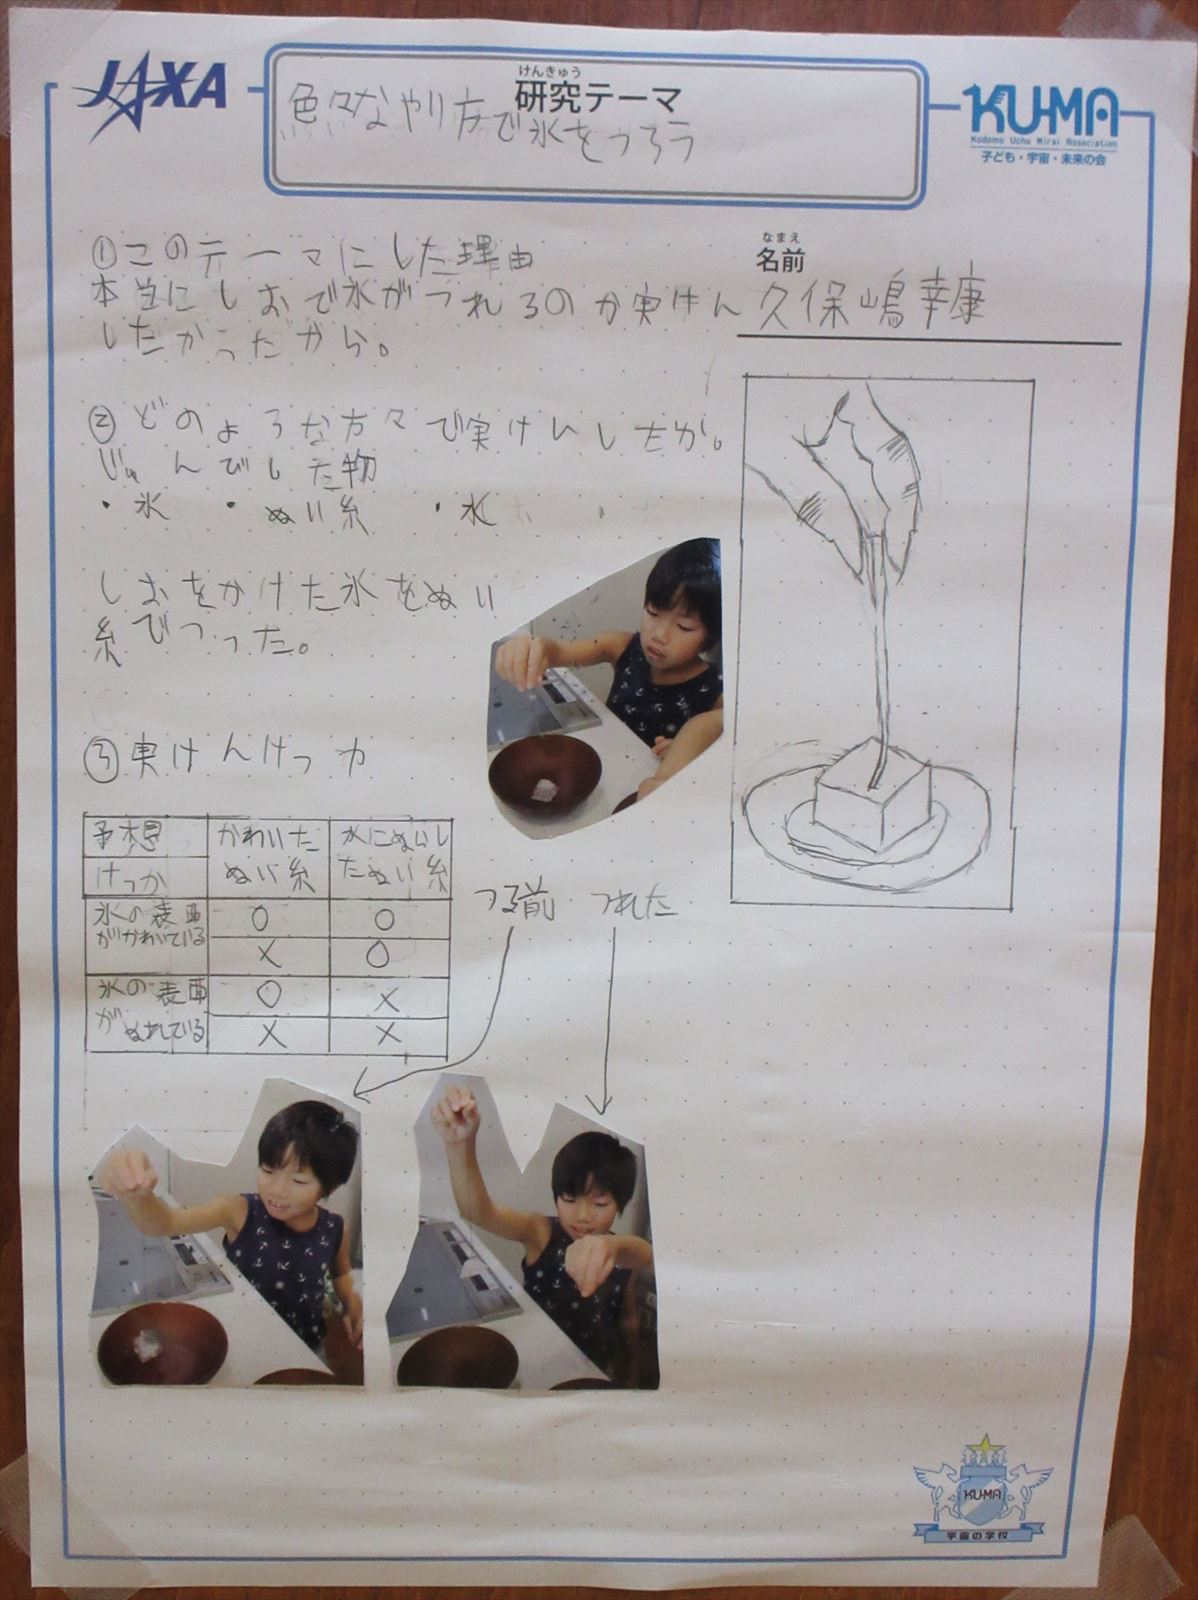 JAXA
けんきゅう
研究テーマ
色々なやり方で氷をつろう
KU-MA
Kodomo Uchu Mirai Association
子ども・宇宙・未来の会
なまえ
名前
久保嶋幸康
①このテーマにした理由
本当にしおで氷がつれるのか実けん
したかったから。
②どのような方々で実けんしたか。
じゅんびした物
・氷 ・ぬい糸 ・水
しおをかけた氷をぬい
糸でつった。
③実けんけっか
予想
けっか
かわいた
ぬい糸
水にぬらし
たぬい糸
氷の表面
がかわいている
○ ○
× ○
氷の表面
がぬれている
○ ×
× ×
つる前 つれた
KU-MA
宇宙の学校